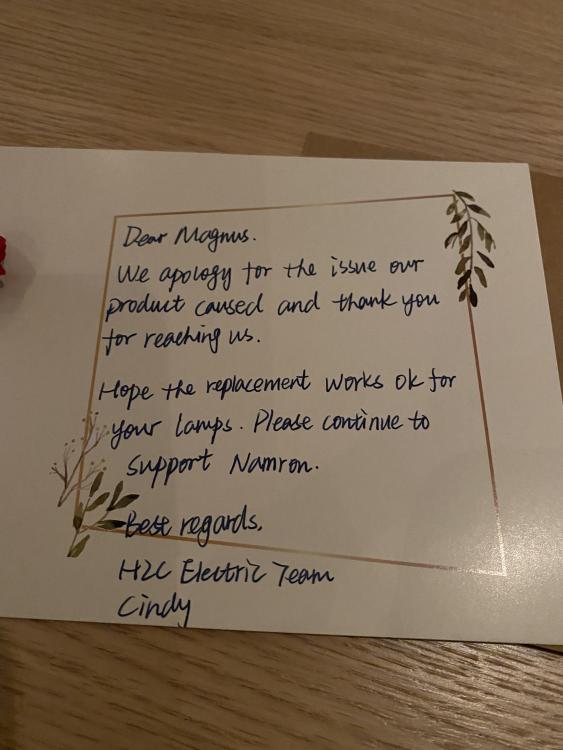 Dear Magnus.
We apology for the issue our
product caused and thank you
for reaching us.
Hope the replacement works ok for
your lamps. Please continue to
support Namron.
Best regards,
HZC Electric Team
Cindy